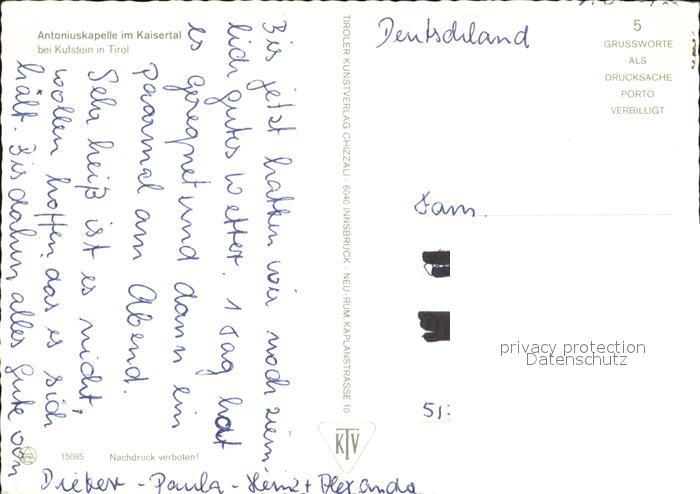 Antoniuskapelle im Kaisertal
bei Kufstein in Tirol
Bis jetzt hatten wir noch ziem-
lich gutes Wetter. 1 Tag hat
es geregnet und dann ein
paarmal am Abend.
Sehr heiß ist es nicht,
wollen hoffen, das es sich
hält. Bis dahin alles Gute von
Dieter - Paula - Heinz + Alexander
15085 Nachdruck verboten!
TIROLER KUNSTVERLAG CHIZZALI · 6040 INNSBRUCK · NEU-RUM, KAPLANSTRASSE 10
KTV
Deutschland
5
GRUSSWORTE
ALS
DRUCKSACHE
PORTO
VERBILLIGT
Fam.
51
privacy protection
Datenschutz